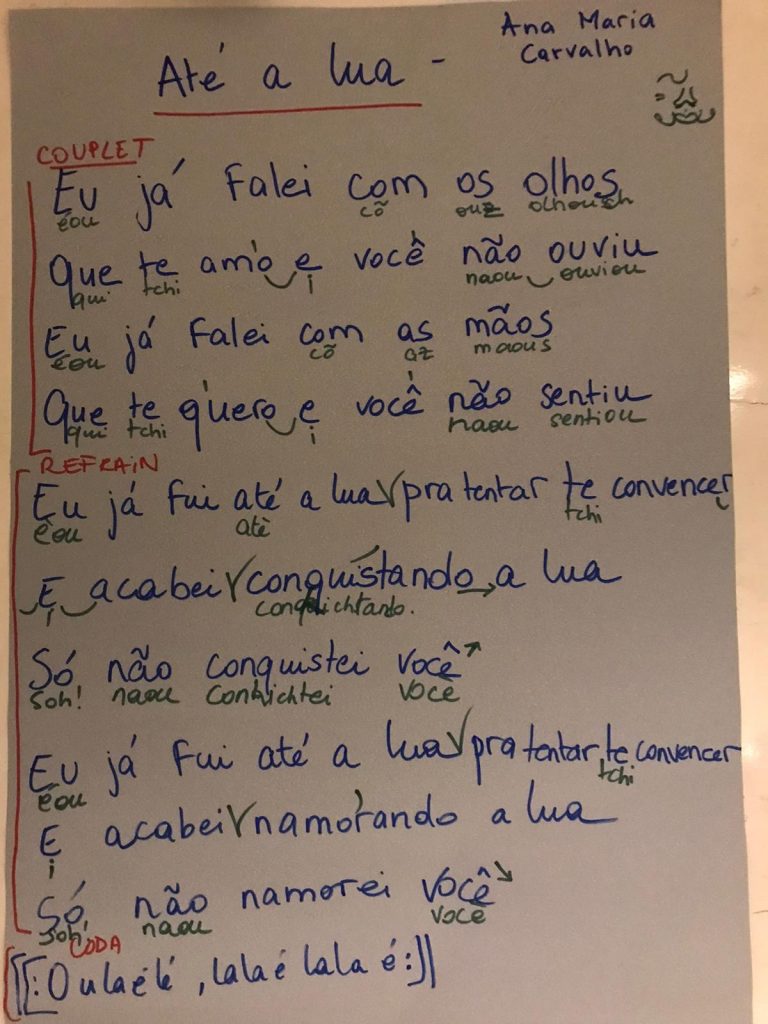 Ana Maria
Carvalho
Até a lua -
COUPLET
Eu já falei com os olhos
éou cõ ouz olhousch
Que te amo e você não ouviu
qui tchi i naou ouviou
Eu já falei com as mãos
éou cõ az maous
Que te quero e você não sentiu
qui tchi i naou sentiou
REFRAIN
Eu já fui até a lua pra tentar te convencer
èou atè tchi
E acabei conquistando a lua
i conquichtando.
Só não conquistei você
soh! naou Conkichtei voce
Eu já fui até a lua pra tentar te convencer
éou tchi
E acabei namorando a lua
i
Só não namorei você
soh! naou voce
CODA
[[: O ulaélé, lalaé lala é :]]